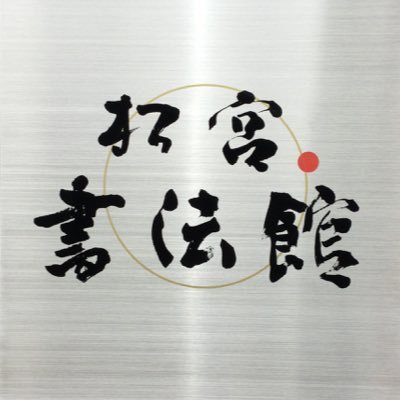 松宮
書法館